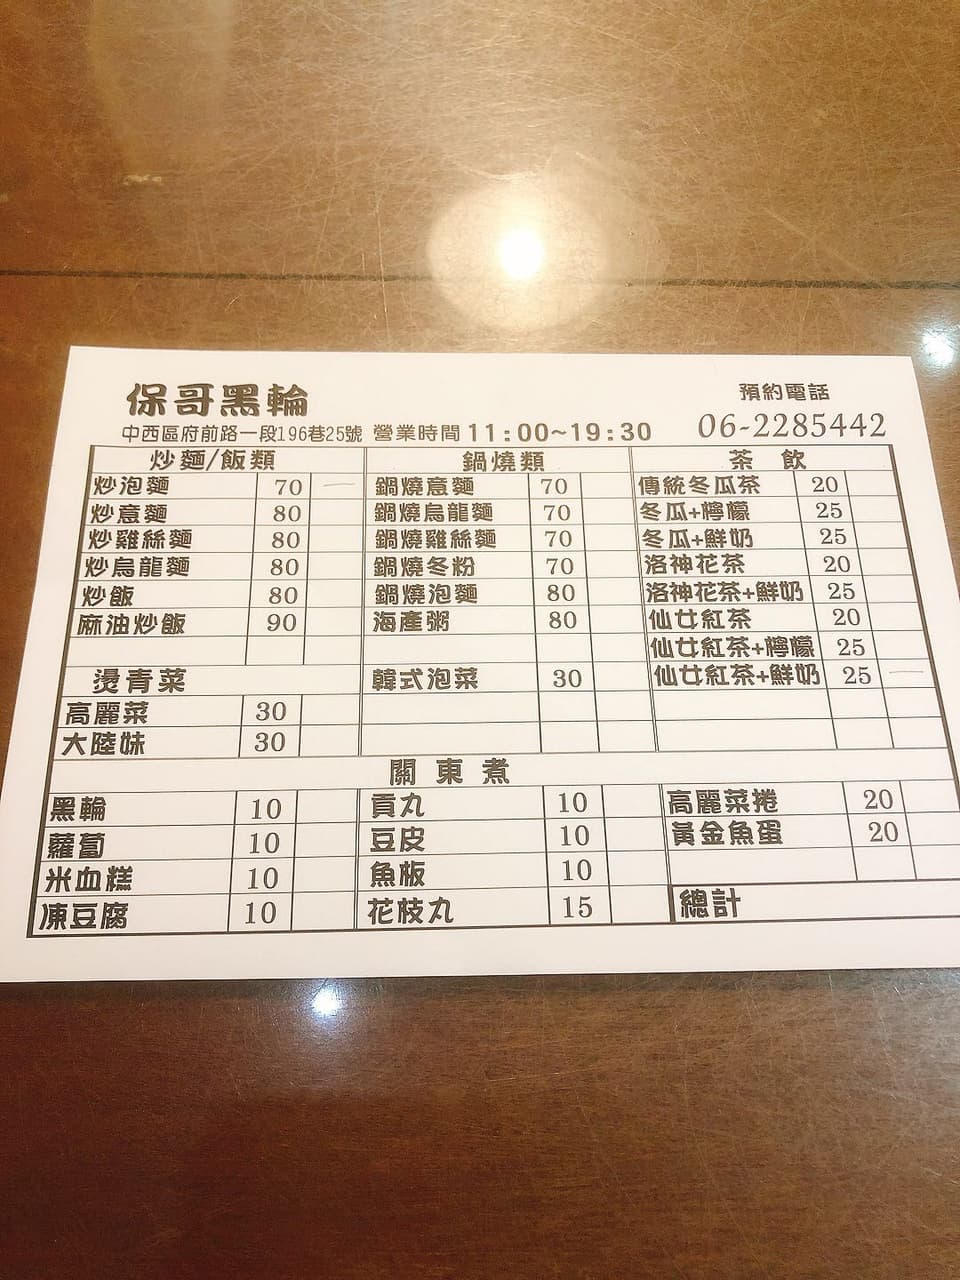 保哥黑輪
預約電話
中西區府前路一段196巷25號 營業時間 11:00~19:30 06-2285442
炒麵/飯類 鍋燒類 茶飲
炒泡麵 70 鍋燒意麵 70 傳統冬瓜茶 20
炒意麵 80 鍋燒烏龍麵 70 冬瓜+檸檬 25
炒雞絲麵 80 鍋燒雞絲麵 70 冬瓜+鮮奶 25
炒烏龍麵 80 鍋燒冬粉 70 洛神花茶 20
炒飯 80 鍋燒泡麵 80 洛神花茶+鮮奶 25
麻油炒飯 90 海產粥 80 仙女紅茶 20
仙女紅茶+檸檬 25
燙青菜 韓式泡菜 30 仙女紅茶+鮮奶 25
高麗菜 30
大陸妹 30
關東煮
黑輪 10 貢丸 10 高麗菜捲 20
蘿蔔 10 豆皮 10 黃金魚蛋 20
米血糕 10 魚板 10
凍豆腐 10 花枝丸 15 總計